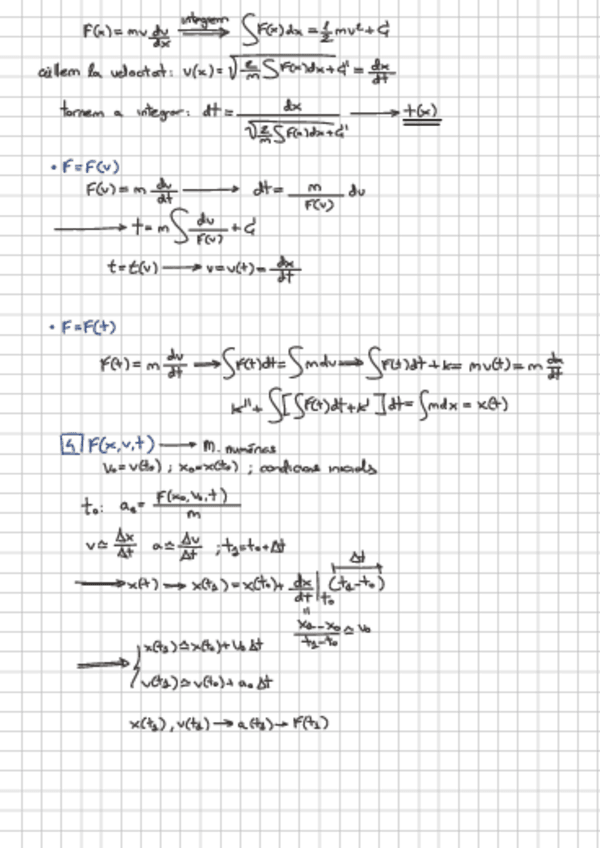 F(x) = mv dv/dx ⟹ integrem ∫F(x)dx = 1/2 mv² + C
aïllem la velocitat: v(x) = √(2/m ∫F(x)dx + C') = dx/dt
tornem a integrar: dt = dx / √(2/m ∫F(x)dx + C') ⟶ t(x)
• F=F(v)
F(v) = m dv/dt ⟶ dt = m/F(v) dv
⟶ t = m ∫ dv/F(v) + C
t = t(v) ⟶ v = v(t) = dx/dt
• F=F(t)
F(t) = m dv/dt ⟶ ∫F(t)dt = ∫mdv ⟶ ∫F(t)dt + k = mv(t) = m dx/dt
k'' + ∫[∫F(t)dt + k']dt = ∫mdx = x(t)
4 F(x,v,t) ⟶ M. numèrics
v₀ = v(t₀) ; x₀ = x(t₀) ; condicions inicials
t₀: a₀ = F(x₀, v₀, t) / m
v ≃ Δx/Δt a ≃ Δv/Δt ; t₁ = t₀ + Δt
⟶ x(t) ⟶ x(t₁) = x(t₀) + dx/dt |t₀ (t₁ - t₀) Δt
" x₁ - x₀ / t₁ - t₀ ≃ v₀
x(t₁) ≃ x(t₀) + v₀ Δt
⟶ { v(t₁) ≃ v(t₀) + a₀ Δt
x(t₁), v(t₁) ⟶ a(t₁) ⟶ F(t₁)